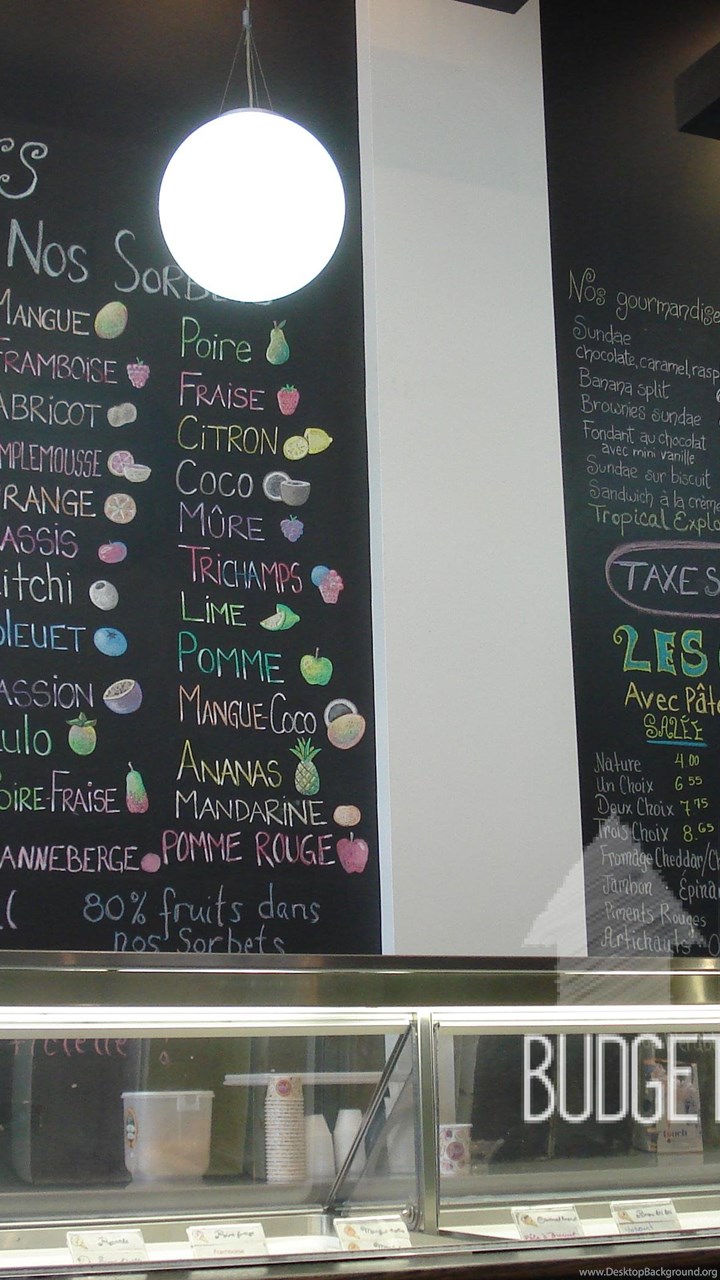 Nos Sorbets
MANGUE
FRAMBOISE
ABRICOT
MPLEMOUSSE
RANGE
ASSIS
itchi
BLEUET
ASSION
ulo
OIRE-FRAISE
ANNEBERGE
Poire
FRAISE
CITRON
COCO
MÛRE
TRICHAMPS
LIME
POMME
MANGUE-COCO
ANANAS
MANDARINE
POMME ROUGE
80% fruits dans
nos Sorbets
Nos gourmandise
Sundae
chocolate, caramel, rasp
Banana split
Brownies sundae
Fondant au chocolat
avec mini vanille
Sundae sur biscuit
Sandwich à la crème
Tropical Explo
TAXES
LES
Avec Pâte
SALÉE
Nature 4 00
Un Choix 6 55
Deux Choix 7 75
Trois Choix 8.65
Fromage Cheddar/Ch
Jambon Épina
Piments Rouges
Artichauts
BUDGET
www.DesktopBackground.org